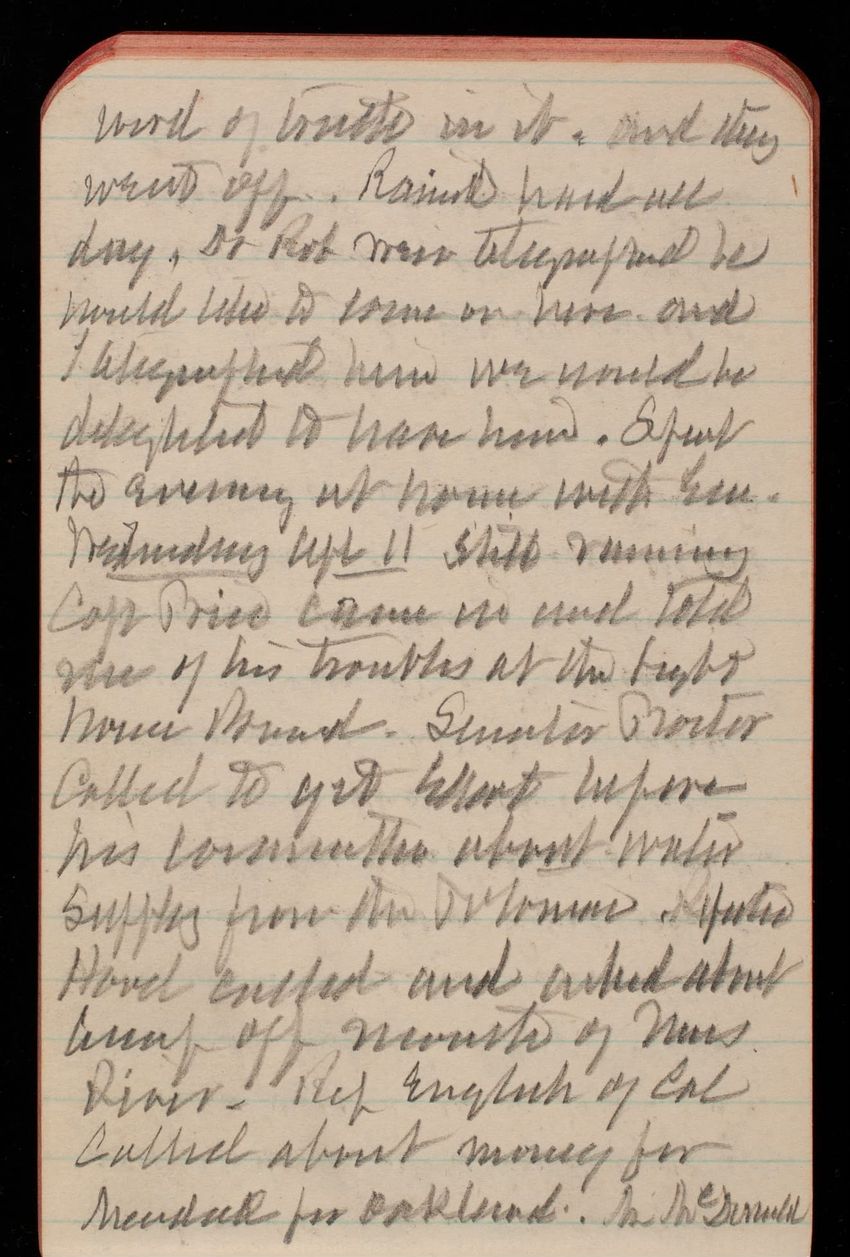 word of truth in it. and they
went off. Raind hard all
day. Dr Rob Weir telegraphed he
would like to come on here and
I telegraphed him we would be
delighted to have him. Spent
the evening at home with
Wednesday Sept 11 Still raining
Capt Price came in and told
me of his troubles at the Light
house Board. Senator Proctor
Called to get before
his committee about water
Supply from the Potomac.
called and asked about
off mouth of
River. Rep English of Cal
Called about money for
for Oakland. Mr McDonald